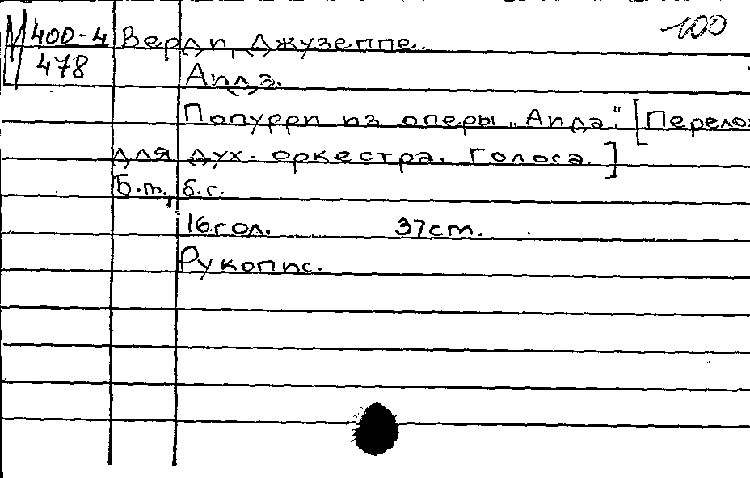 100
М 400-4 Верди, Джузеппе.
478 Аида.
Попурри из оперы „Аида". [Перело
для дух. оркестра. Голоса.]
Б.м., б.г.
16 гол. 37 ст.
Рукопис.